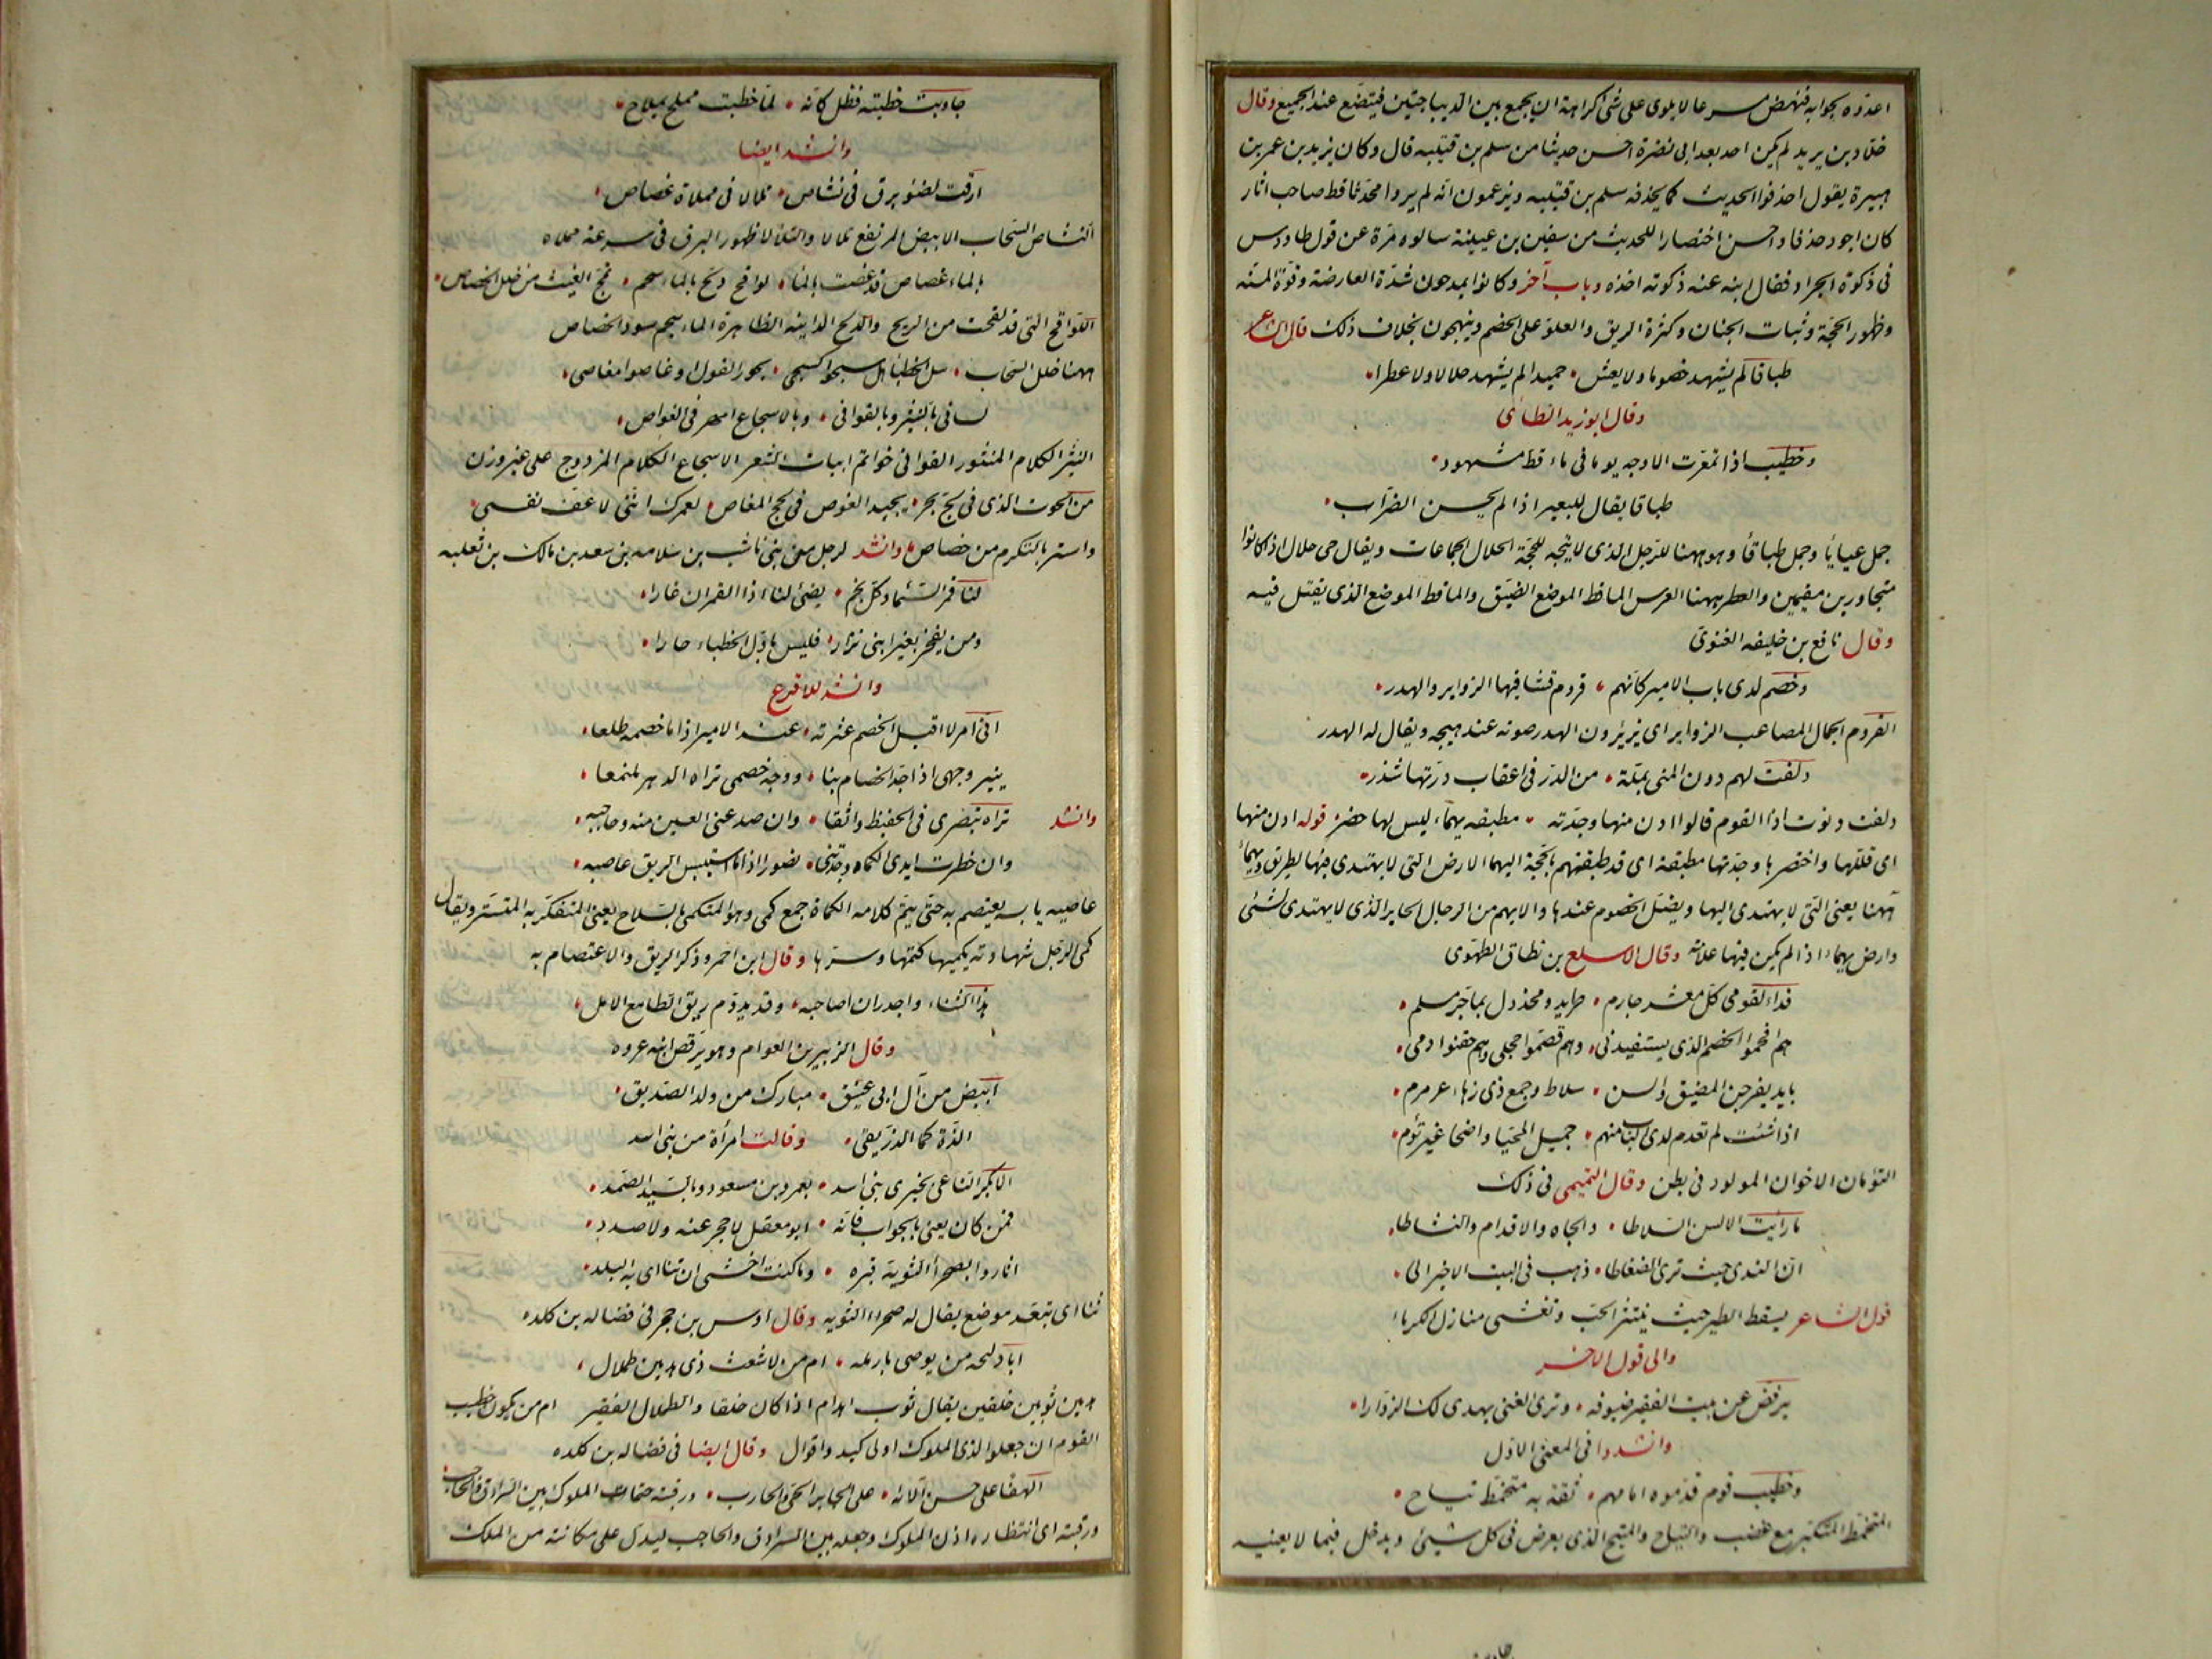 اعدّوه بجوابه فنهض مسرعا لا يلوى على شئ كراهة ان يجمع بين الديباجتين فيتضع عند الجميع وقال
خلاد بن يزيد لم يكن احد بعد ابى نضرة احسن حديثا من سلم بن قتيبه قال وكان يزيد بن عمر بن
هبيرة يقول احذفوا الحديث كما يحذفه سلم بن قتيبه ويزعمون انه لم يروا محدثا قط صاحب اثار
كان اجود حذفا واحسن اختصارا للحديث من سفين بن عيينة سالوه مرة عن قول طاوس
فى ذكوة الجراد فقال ابنه عنه ذكوته اخذه وباب آخر وكانوا يمدحون شدّة العارضة وقوّة المنّه
وظهور الحجّة وثبات الجنان وكثرة الريق والعلوّ على الخصم ويهجون بخلاف ذلك قال الشاعر
طباقا لم يشهد خصوما ولا يعش حميدا لم يشهد حلالا ولا عطرا
وقال ابو زيد الطائى
وخطيب اذا تمعرت الاوجه يوما فى ماقط مشهود
طباقا يقال للبعير اذا لم يحسن الضراب
جمل عياياً وجمل طباقاً وهو ههنا للرجل الذى لا يتجه للحجّة الحلال الجماعات ويقال حى حلال اذا كانوا
متجاورين مقيمين والعطر ههنا العرس الماقط الموضع الضيق والماقط الموضع الذى يقتل فيه
وقال نافع بن خليفه الغنوى
وخصم لدى باب الامير كانهم قروم فشا فيها الزواير والهدر
القروم الجمال المصاعب الزواير اى يزيرون الهدر صوته عند هيجه ويقال له الهدر
دلفت لهم دون المنى بملة من الدر فى اعقاب درتها شذر
دلفت دنوت اذا القوم قالوا ادن منها وجدته مطبقه يهماء ليس لها حضر قوله ادن منها
اى قللها واختصرها وجدتها مطبقة اى قد طبقتهم بالحجة اليهما الارض التى لا يهتدى فيها لطريق ويهماء
ههنا يعنى التى لا يهتدى اليها ويضل الخصوم عندها والايهم من الرجال الحاير الذى لا يهتدى لشئى
وارض يهماء اذا لم يكن فيها علامة وقال الاسلع بن نطاق الطهوى
فداء لقومى كل معشر جارم طريد ومخذول بما جر مسلم
هم افحموا الخصم الذى يستفيدنى وهم قصموا حجلى وهم حقنوا دمى
بايد يفرجن المضيق والسن سلاط وجمع ذى زهاء عرمرم
اذا شئت لم تعدم لدى الباب منهم جميل المحيا واضحا غير تؤم
التؤمان الاخوان المولود فى بطن وقال التميمى فى ذلك
ما رايت الالسن السلاطا والجاه والاقدام والنشاطا
ان الندى حيث ترى الضغاطا ذهب فى البيت الاخير الى
قول الشاعر يسقط الطير حيث ينتثر الحب وتغشى منازل الكرماء
والى قول الاخر
يرفض عن بيت الفقير ضيوفه وترى الغنى يهدى لك الزوارا
وانشدوا فى المعنى الاول
وخطيب قوم قدموه امامهم ثقة به متخمط تياح
المتخمط المتكبر مع غضب والتياح والمتيح الذى يعرض فى كل شيئ ويدخل فيما لا يعنيه
جاوبت خطبته فظل كانه لما خطبت مملح بملاح
وانشد ايضا
ارقت لضوء برق فى نشاص تلالا فى مملاة غصاص
النشاص السحاب الابيض المرتفع تلالا والتلالا ظهور البرق فى سرعة مملاه
بالماء غصاص قد غصت بالماء لواقح دلح بالماء سحم تمج الغيث من خلل الخصاص
اللواقح التى قد لقحت من الريح والدلح الدانيه الظاهرة الماء سحم سود الخصاص
ههنا خلل السحاب سل الخطباء هل سبحوا كسبحى بحور القول او غاصوا مغاصى
لسانى بالنثير وبالقوافى وبالاسجاع امهر فى الغواص
النثر الكلام المنثور القوافى خواتم ابيات الشعر الاسجاع الكلام المزدوج على غير وزن
من الحوت الذى فى لج بحر يجيد الغوص فى لجج المغاص لعمرك اننى لاعف نفسى
واستر بالتكرم من خصاص وانشد لرجل من بنى ناشب بن سلامه بن سعد بن مالك بن ثعلبه
لنا قمر السماء وكل نجم يضئ لنا اذا القمران غارا
ومن يفخر بغير ابنى نزارا فليس باول الخطباء جارا
وانشد للاقرع
انى امرء لا اقيل الخصم عثرته عند الامير اذا ما خصمه طلعا
ينير وجهى اذا جد الخصام بنا ووجه خصمى تراه الدهر ملتمعا
وانشد تراه بنصرى فى الحفيظ واثقا وان صد عنى العين منه وحاجبه
وان خطرت ايدى الكماه وجدتنى نصورا اذا ما استيبس الريق عاصبه
عاصبه يابسه يعتصم به حتى يتم كلامه الكماة جمع كمى وهو المتكمى بالسلاح يعنى المتفكر به المتستر ويقال
كمى الرجل شهادته يكميها كتمها وسترها وقال ابن احمر وذكر الريق والاعتصام به
هذا الثناء واجدر ان اصاحبه وقد يدوم ريق الطامع الامل
وقال الزبير بن العوام وهو يرقص ابنه عروه
ابيض من آل ابى عتيق مبارك من ولد الصديق
الذه كما الذ ريقى وقالت امرأة من بنى اسد
الا بكر الناعى بخيرى بنى اسد بعمرو بن مسعود وبالسيد الصمد
فمن كان يعيى بالجواب فانه ابو معقل لا حجر عنه ولا صدد
اثاروا بصحراء الثوية قبره وما كنت اخشى ان تناءى به البلد
تناءى تبعد موضع يقال له صحراء الثويه وقال اوس بن حجر فى فضاله بن كلده
ابا دليجه من يوصى بارمله ام من لاشعث ذى هدمين طملال
هدمين ثوبين خلقين يقال ثوب اهدام اذا كان خلقا والطملال الفقير ام من يكون خطيب
القوم ان جعلوا لذى الملوك اولى كيد واقوال وقال ايضا فى فضاله بن كلده
الهفا على حسن آلائه على الجابر الحى والحارب ورقبته حتمات الملوك بين السرادق والحاجب
ورقبته اى انتظاره اذن الملوك وجعله بين السرادق والحاجب ليدل على مكانته من الملك